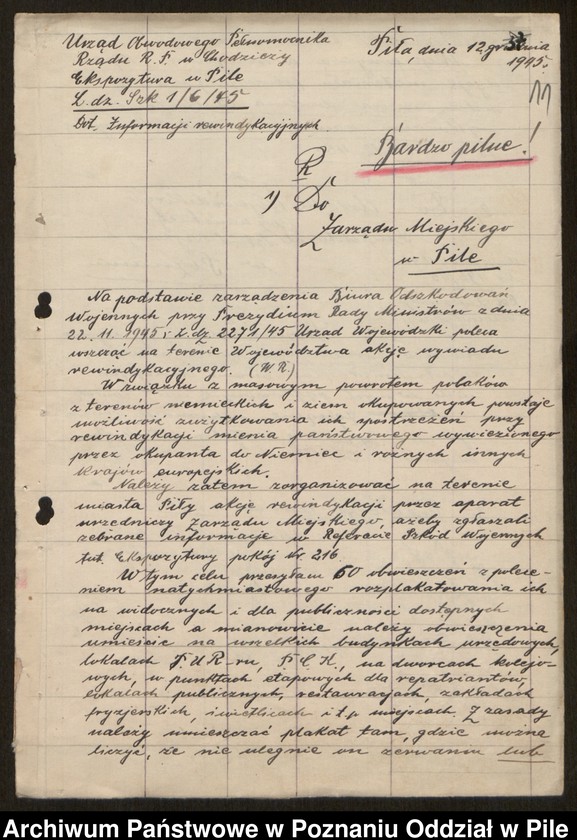 Urząd Obwodowego Pełnomocnika
Rządu R.P. w Chodzieży
Ekspozytura w Pile
L. dz. Szk 1/6/45
Dot. Informacji rewindykacyjnych.
Piła, dnia 12 grudnia
1945.
Bardzo pilne!
R
1) Do
Zarządu Miejskiego
w Pile
Na podstawie zarządzenia Biura Odszkodowań
Wojennych przy Prezydium Rady Ministrów z dnia
22. 11. 1945 r. L.dz. 2271/45 Urząd Wojewódzki poleca
wszcząć na terenie Województwa akcję wywiadu
rewindykacyjnego. (W.R.)
W związku z masowym powrotem polaków
z terenów niemieckich i ziem okupowanych powstaje
możliwość zużytkowania ich spostrzeżeń przy
rewindykacji mienia państwowego wywiezionego
przez okupanta do Niemiec i rożnych innych
krajów europejskich.
Należy zatem zorganizować na terenie
miasta Piły akcję rewindykacji przez aparat
urzędniczy Zarządu Miejskiego, ażeby zgłaszali
zebrane informacje w Referacie Szkód Wojennych
tut. Ekspozytury pokój Nr. 216.
W tym celu przesyłam 60 obwieszczeń z polece-
niem natychmiastowego rozplakatowania ich
na widocznych i dla publiczności dostępnych
miejscach a mianowicie należy obwieszczenia
umieścić na wszelkich budynkach urzędowych,
lokalach P.U.R-ru, P.C.K., na dworcach kolejo-
wych, w punktach etapowych dla repatriantów,
lokalach publicznych, restauracjach, zakładach
fryzjerskich, świetlicach i t.p. miejscach. Z zasady
należy umieszczać plakat tam, gdzie można
liczyć, że nie ulegnie on zerwaniu lub
Archiwum Państwowe w Poznaniu Oddział w Pile